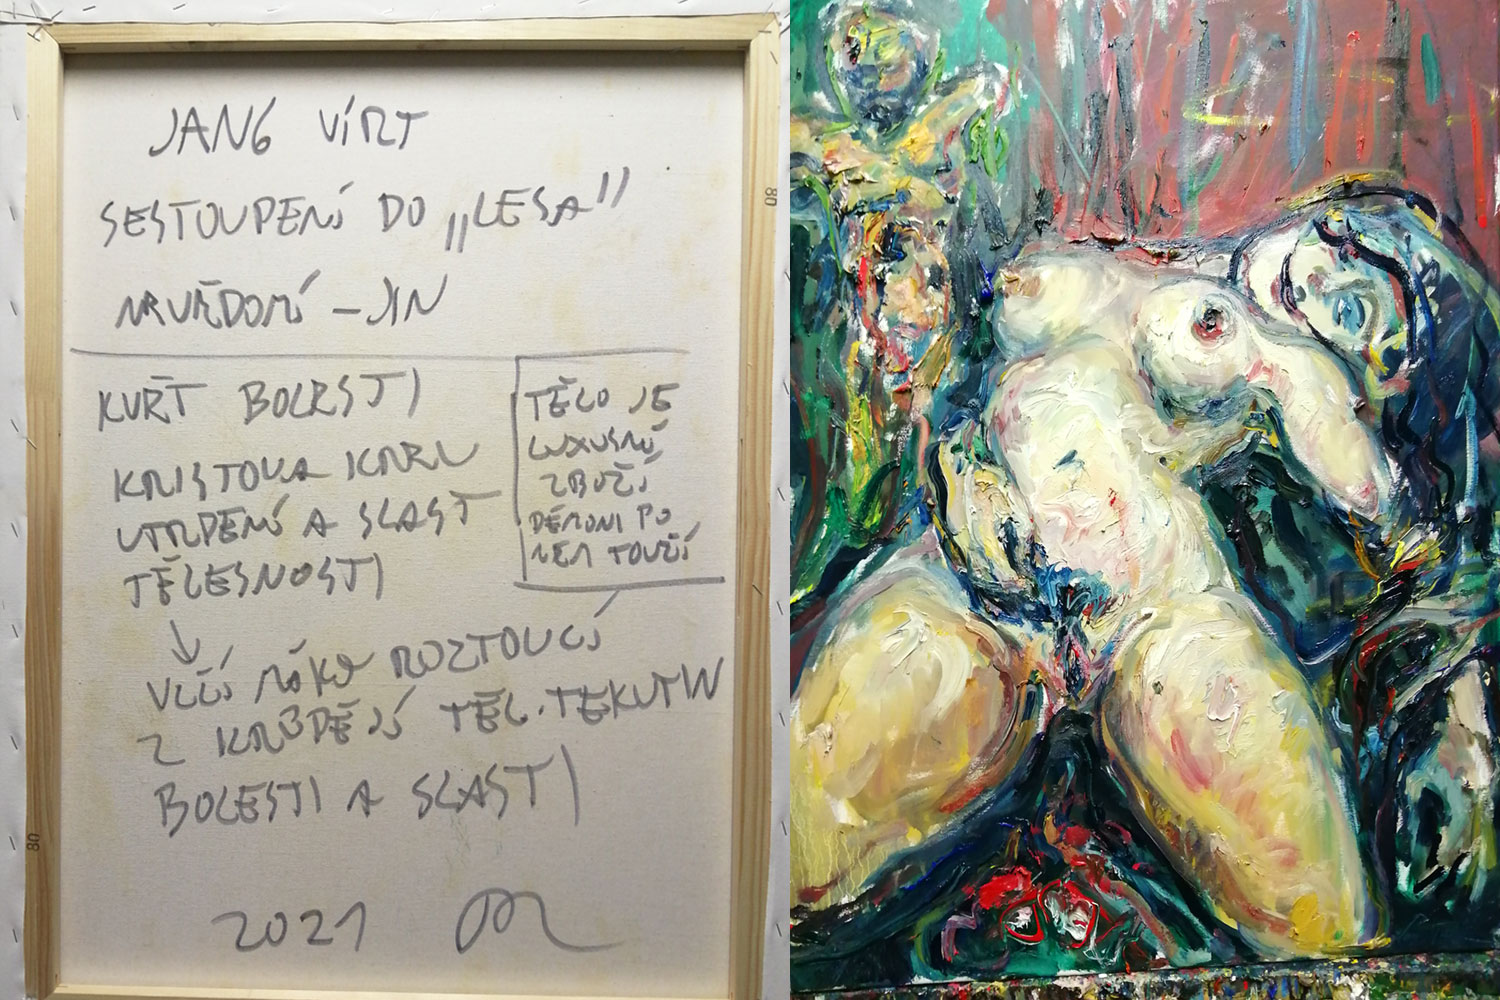 JANG VÍRT
SESTOUPENÍ DO „LESA"
NEVĚDOMÍ – JIN
KVĚT BOLESTI
KRISTOVA
UTRPENÍ A SLAST
TĚLESNOSTI
TĚLO JE
LUXUSNÍ
ZBOŽÍ
DÉMONI PO
NĚM TOUŽÍ
VLČÍ ROZTOUCÍ
Z TĚL. TEKUTIN
BOLESTI A SLASTI
2021
80
80